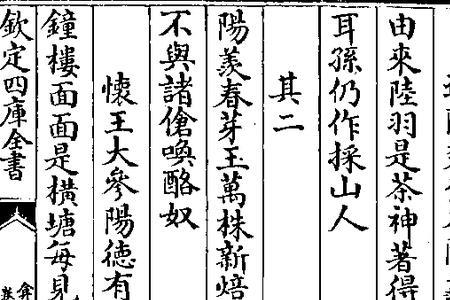 由來陸羽是茶神著得
耳孫仍作採山人
其二
陽羨春芽玉萬株新焙
不與諸傖喚酪奴
懷王大參陽德有
鐘樓面面是橫塘每見
欽定四庫全書